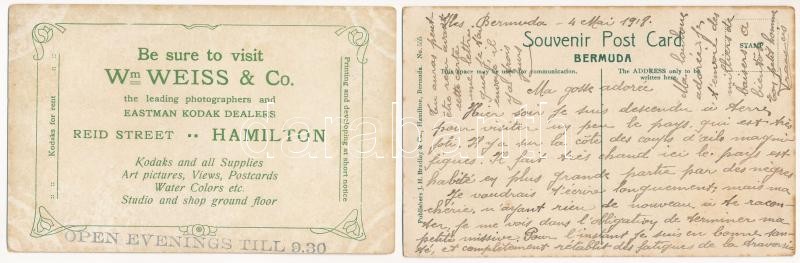 Be sure to visit
Wm WEISS & Co.
the leading photographers and
EASTMAN KODAK DEALERS
REID STREET •• HAMILTON
Kodaks and all Supplies
Art pictures, Views, Postcards
Water Colors etc.
Studio and shop ground floor
Kodaks for rent
Printing and developing at short notice
OPEN EVENINGS TILL 9.30
Iles Bermuda - 4 Mai 1918.
Souvenir Post Card
BERMUDA
STAMP
This space may be used for communication.
The ADDRESS only to be
written here.
Publishers J. H. Bradley & Co., Hamilton, Bermuda. No. 505
Tu auras peut
être reçu avant
cette carte
une lettre
que je t'ai
envoyé il y
a
jours
Ma gosse adorée
Hier soir je suis descendu à terre
pour visiter un peu le pays, qui est très
joli. Il y a sur la côte des coups d'œils magni
fiques. Il fait très chaud ici le pays est
habité en plus grande partie par des negres
Je voudrais t'écrire longuement; mais ma
cherie, n'ayant rien de nouveau à te racon-
ter, je me vois dans l'obligation de terminer ma
petite missive. Pour l'instant je suis en bonne san-
té, et complètement rétablit des fatigues de la traversée
Ma
adorée je
t'envoie des
milliers de
baisers à
bientôt
Ton petit homme
Francis